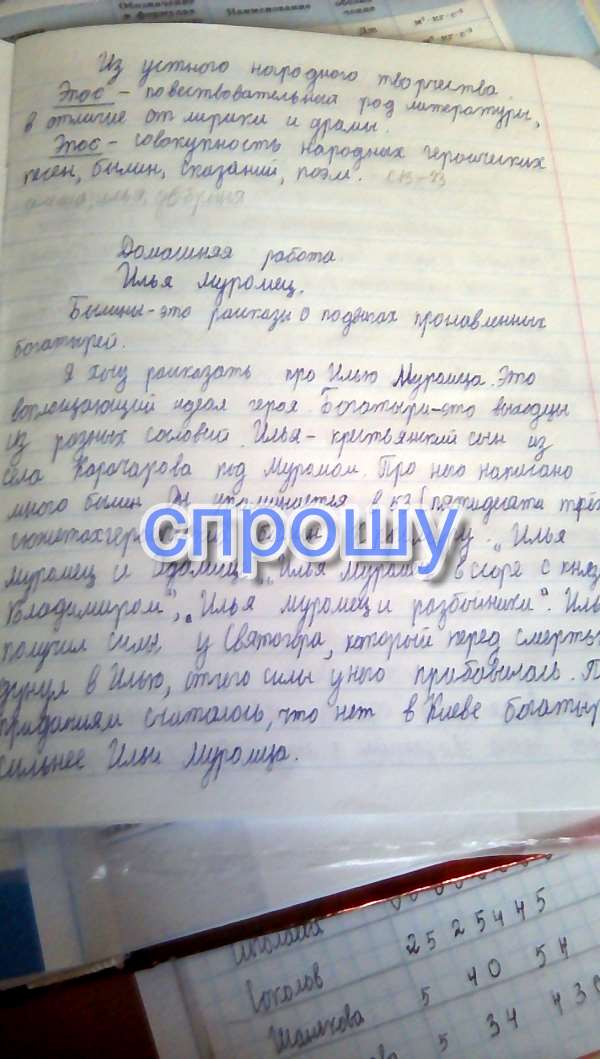 Обозначение
в формулах
Наименование
Дж
м²·кг·с⁻²
Из устного народного творчества.
Эпос - повествовательный род литературы,
в отличие от лирики и драмы.
Эпос - совокупность народных героических
песен, былин, сказаний, поэм.
Домашняя работа.
Илья Муромец.
Былины - это рассказы о подвигах прославленных
богатырей.
Я хочу рассказать про Илью Муромца. Это
воплощающий идеал героя. Богатыри-это выходцы
из разных сословий. Илья - крестьянский сын из
села Карачарова под Муромом. Про него написано
много былин. Он упоминается в 53 (пятидесяти трёх
сюжетах "Илья
спрошу
Муромец и "Илья Муромец в ссоре с князем
Владимиром", "Илья Муромец и разбойники". Илья
получил силу у Святогора, который перед смертью
дунул в Илью, отчего силы у него прибавилось. По
преданиям считалось, что нет в Киеве богатыря
сильнее Ильи Муромца.
25 25 4 4 5
Соколов 5 40 54
5 34 4 3